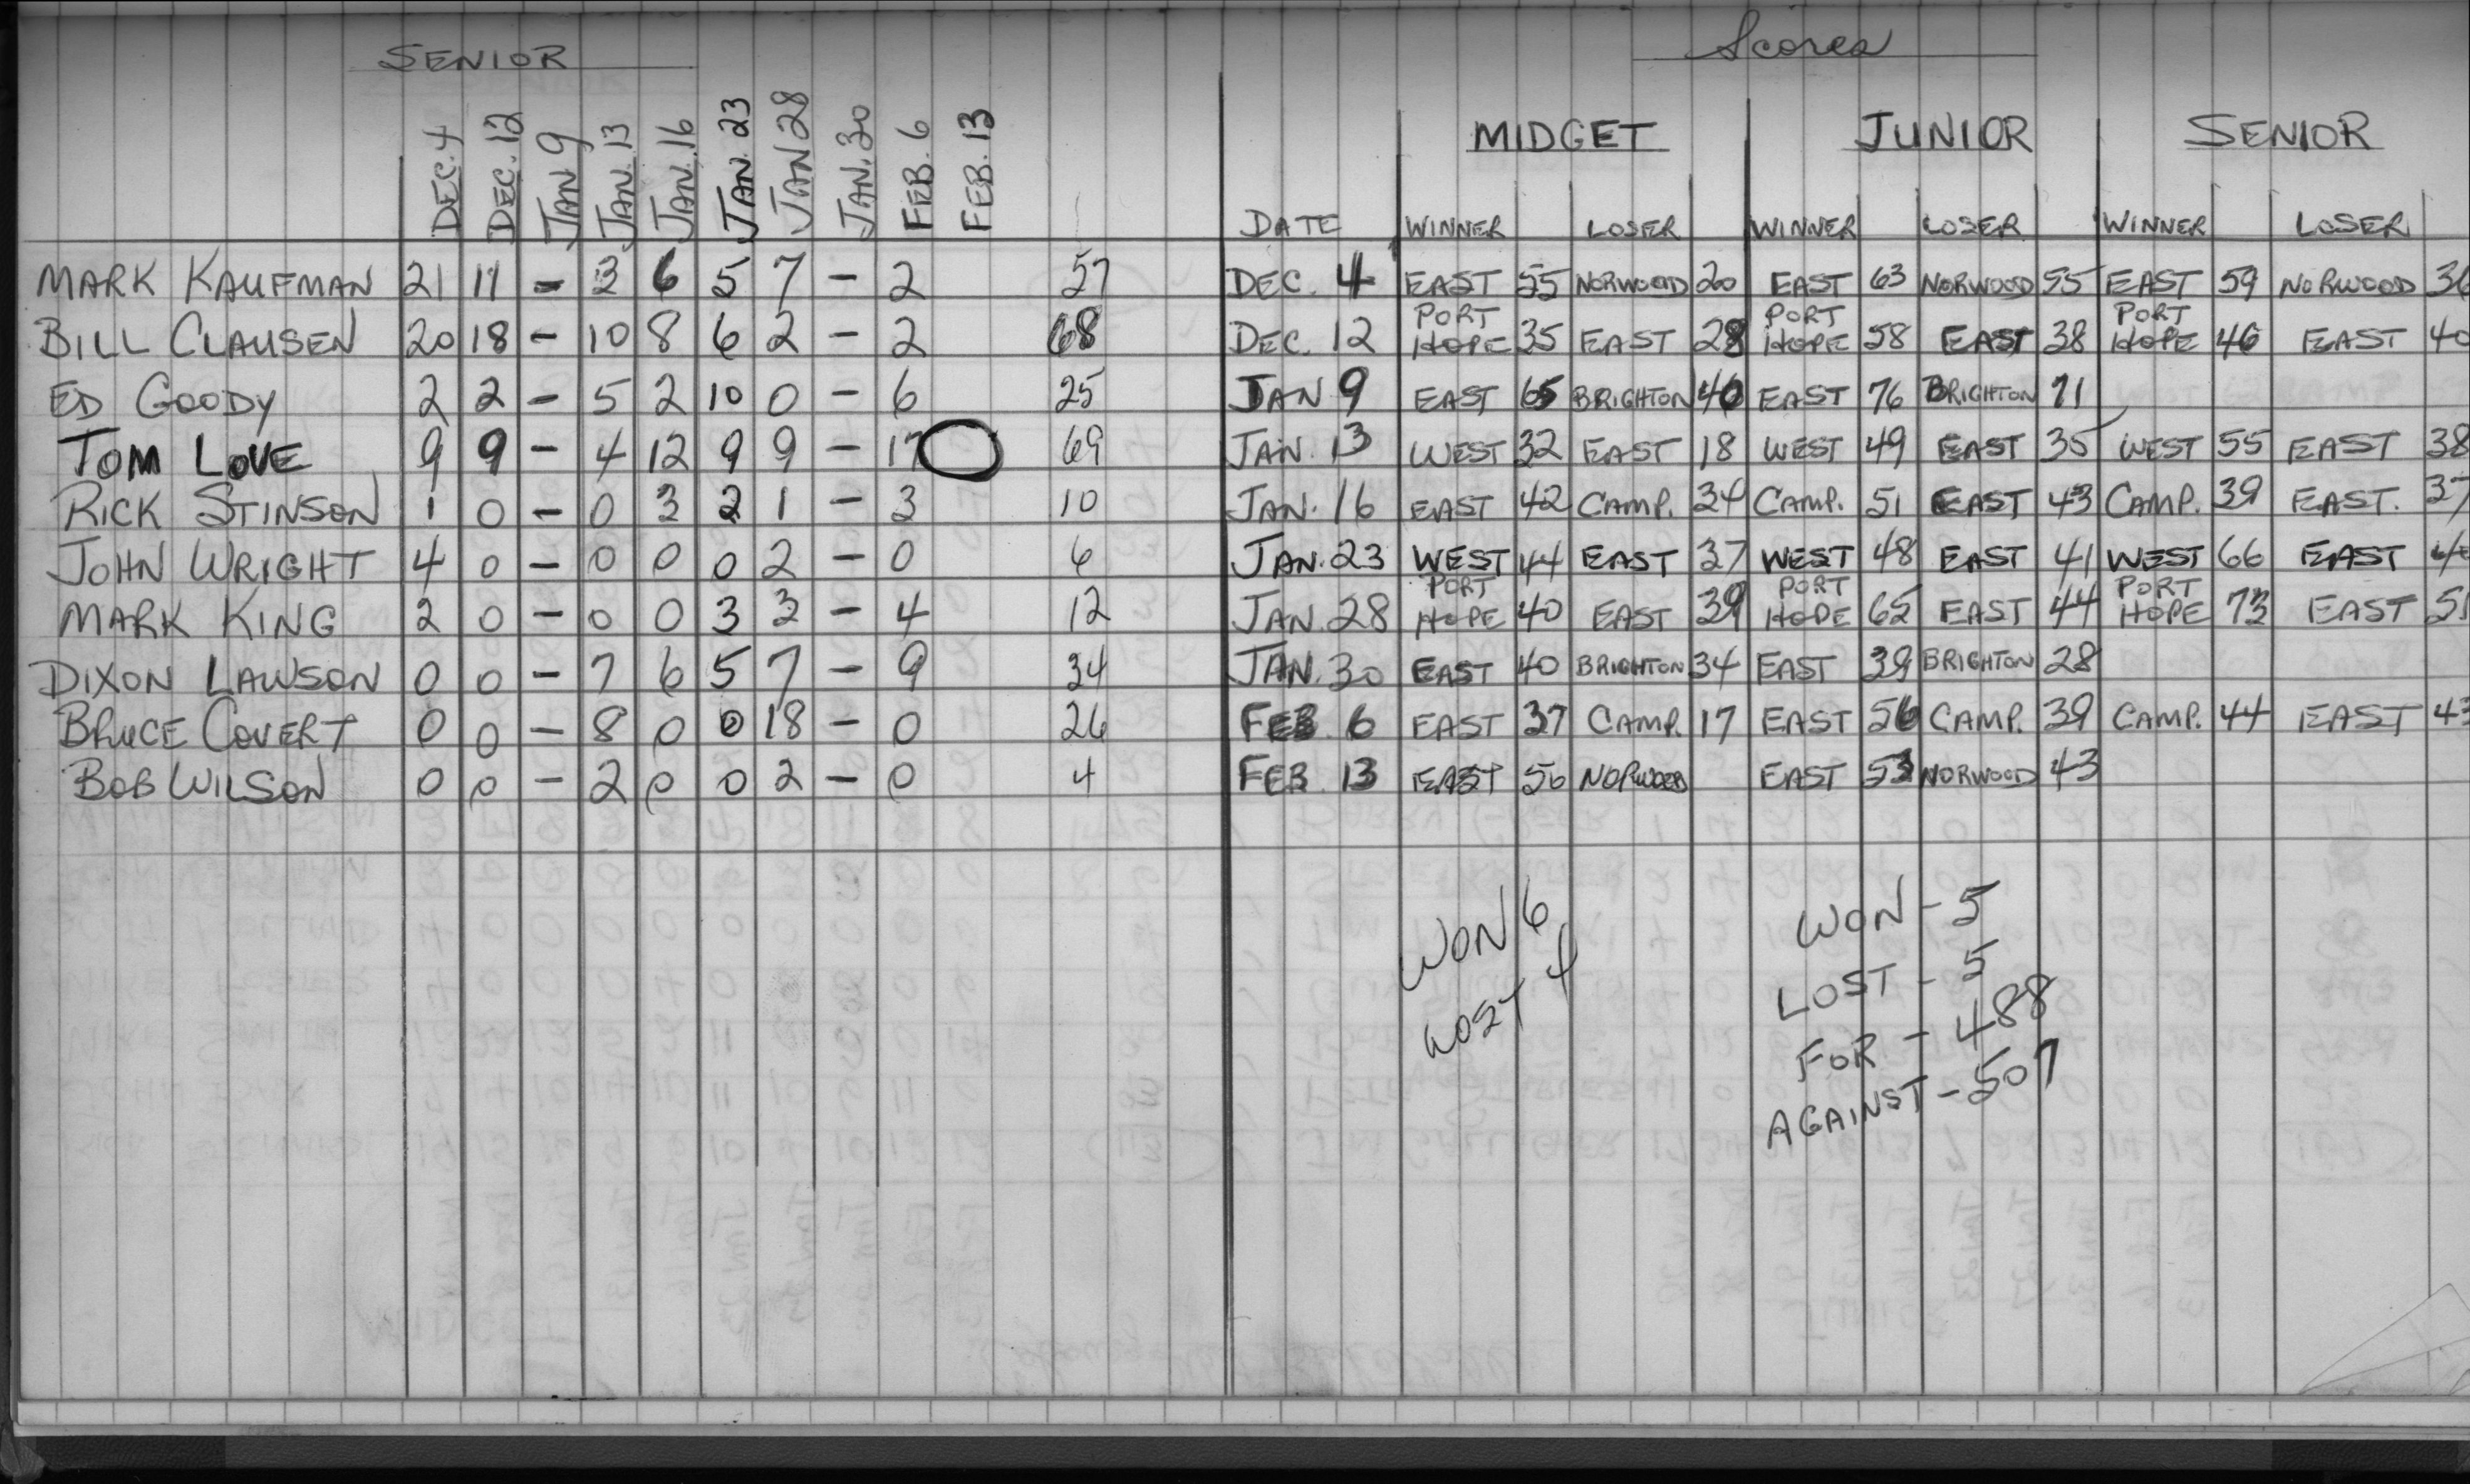 SENIOR
DEC. 4 DEC. 12 JAN 9 JAN. 13 JAN. 16 JAN. 23 JAN 28 JAN. 30 FEB. 6 FEB. 13
MARK KAUFMAN 21 11 - 3 6 5 7 - 2 57
BILL CLAUSEN 20 18 - 10 8 6 2 - 2 68
ED GOODY 2 2 - 5 2 10 0 - 6 25
TOM LOVE 9 9 - 4 12 9 9 - 17 69
RICK STINSON 1 0 - 0 3 2 1 - 3 10
JOHN WRIGHT 4 0 - 0 0 0 2 - 0 6
MARK KING 2 0 - 0 0 3 3 - 4 12
DIXON LAWSON 0 0 - 7 6 5 7 - 9 34
BRUCE COVERT 0 0 - 8 0 0 18 - 0 26
BOB WILSON 0 0 - 2 0 0 2 - 0 4
Scores
MIDGET JUNIOR SENIOR
DATE WINNER LOSER WINNER LOSER WINNER LOSER
DEC. 4 EAST 55 NORWOOD 20 EAST 63 NORWOOD 55 EAST 59 NORWOOD 36
DEC. 12 PORT HOPE 35 EAST 28 PORT HOPE 58 EAST 38 PORT HOPE 46 EAST 40
JAN 9 EAST 65 BRIGHTON 40 EAST 76 BRIGHTON 71
JAN. 13 WEST 32 EAST 18 WEST 49 EAST 35 WEST 55 EAST 38
JAN. 16 EAST 42 CAMP. 34 CAMP. 51 EAST 43 CAMP. 39 EAST. 37
JAN. 23 WEST 44 EAST 37 WEST 48 EAST 41 WEST 66 EAST
JAN. 28 PORT HOPE 40 EAST 39 PORT HOPE 65 EAST 44 PORT HOPE 73 EAST 51
JAN. 30 EAST 40 BRIGHTON 34 EAST 39 BRIGHTON 28
FEB 6 EAST 37 CAMP. 17 EAST 56 CAMP. 39 CAMP. 44 EAST 43
FEB 13 EAST 50 NORWOOD EAST 53 NORWOOD 43
WON 6
LOST 4
WON - 5
LOST - 5
FOR - 488
AGAINST - 507